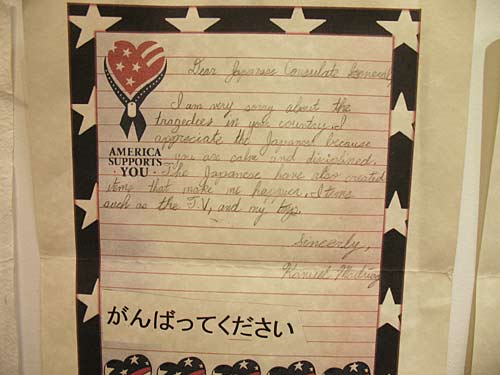 Dear Japanese Consulate General
I am very sorry about the
tragedies in your country. I
appreciate the Japanese because
you are calm and disciplined.
The Japanese have also created
items that make me happier. Items
such as the T.V, and my toys.
Sincerely,
AMERICA
SUPPORTS
YOU
がんばってください